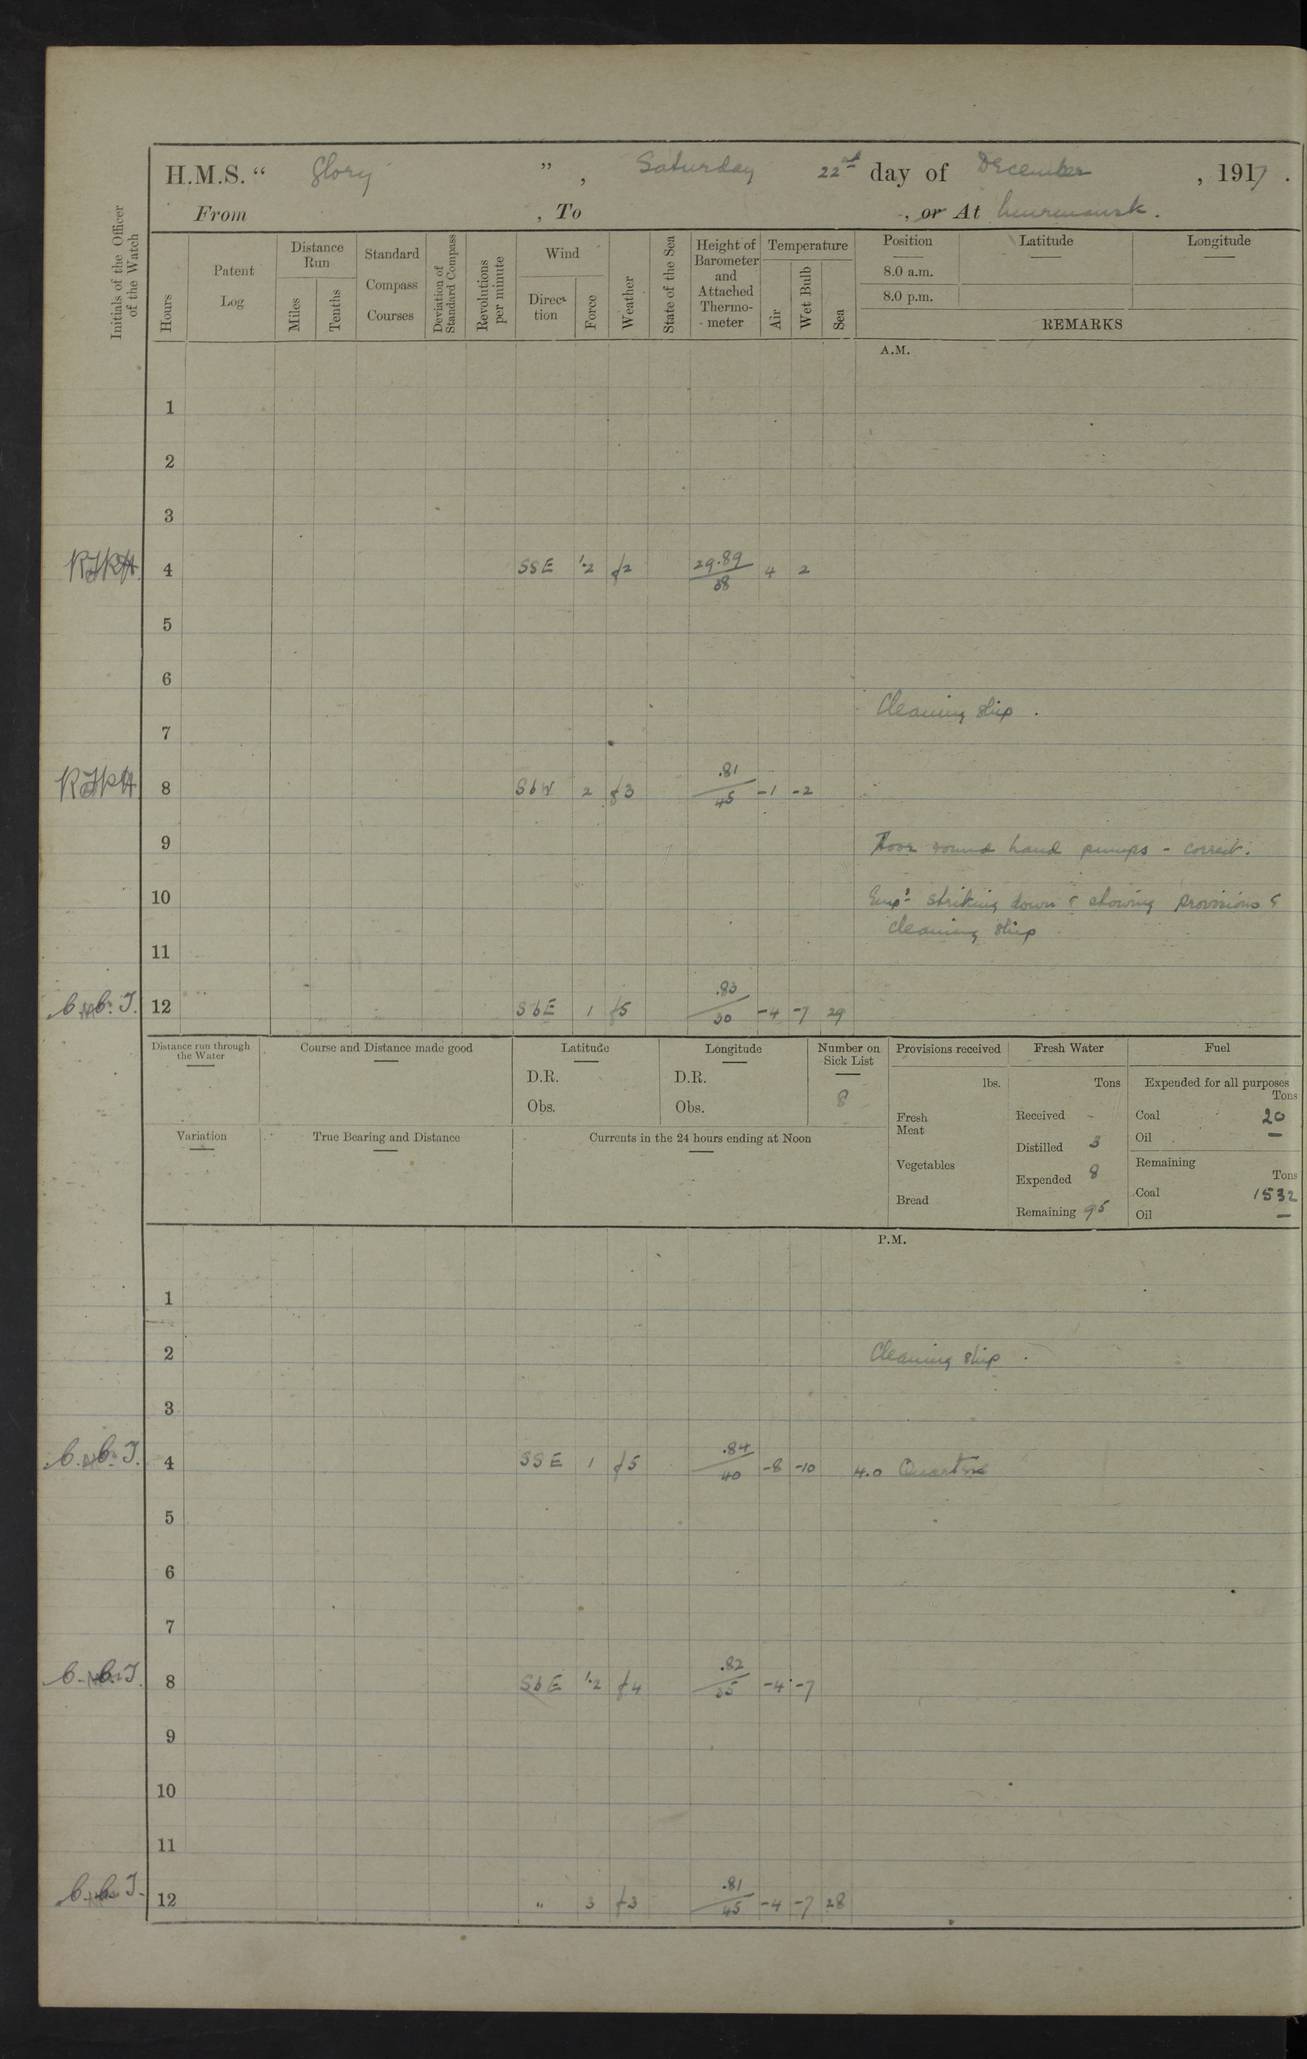 H.M.S. “ Glory ” , Saturday 22nd day of December , 1917 .
From , To , or At Murmansk .
Initials of the Officer of the Watch
Hours
Patent Log
Distance Run
Miles
Tenths
Standard Compass Courses
Deviation of Standard Compass
Revolutions per minute
Wind
Direction
Force
Weather
State of the Sea
Height of Barometer and Attached Thermometer
Temperature
Air
Wet Bulb
Sea
Position Latitude Longitude
8.0 a.m.
8.0 p.m.
REMARKS
A.M.
1
2
3
4 SSE 1.2 f2 29.89 38 4 2
5
6
Cleaning ship .
7
8 SbW 2 f3 .81 45 -1 -2
9 round hand pumps - correct.
10 Empd striking down & stowing provisions &
cleaning ship
11
12 SbE 1 f5 .83 30 -4 -7 29
Distance run through the Water
Course and Distance made good
Latitude
D.R.
Obs.
Longitude
D.R.
Obs.
Number on Sick List
8
Provisions received
lbs.
Fresh Meat
Vegetables
Bread
Fresh Water
Tons
Received -
Distilled 3
Expended 8
Remaining 95
Fuel
Expended for all purposes
Tons
Coal 20
Oil —
Remaining
Tons
Coal 1532
Oil —
Variation
True Bearing and Distance
Currents in the 24 hours ending at Noon
P.M.
1
2 Cleaning ship .
3
4 SSE 1 f5 .84 40 -8 -10 4.0 Quarters
5
6
7
8 SbE 1.2 f4 .82 35 -4 -7
9
10
11
12 " 3 f3 .81 45 -4 -7 28